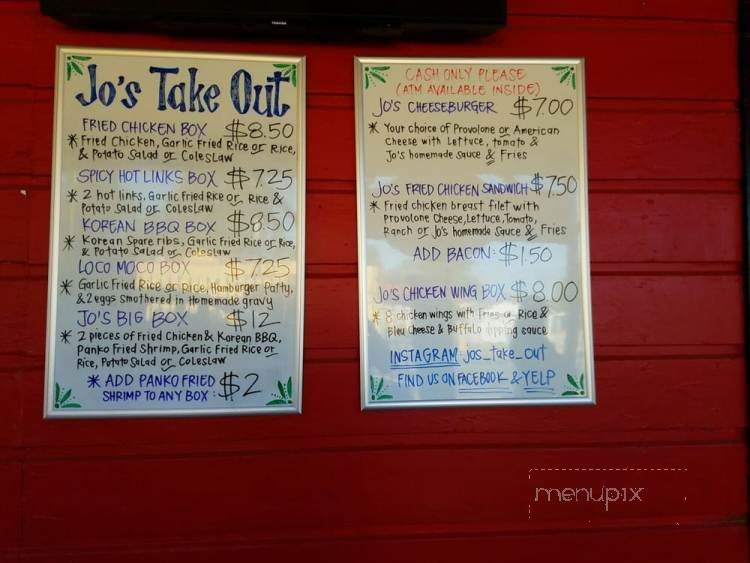 TOSHIBA
Jo's Take Out
FRIED CHICKEN BOX $8.50
* Fried Chicken, Garlic Fried Rice or Rice,
& Potato Salad or Coleslaw
SPICY HOT LINKS BOX $7.25
* 2 hot links, Garlic Fried Rice or Rice &
Potato Salad or Coleslaw
KOREAN BBQ BOX $8.50
* Korean Spare ribs, Garlic Fried Rice or Rice,
& Potato Salad or Coleslaw
LOCO MOCO BOX $7.25
* Garlic Fried Rice or Rice, Hamburger Patty,
& 2 eggs smothered in Homemade gravy
JO'S BIG BOX $12
* 2 pieces of Fried Chicken & Korean BBQ,
Panko Fried Shrimp, Garlic Fried Rice or
Rice, Potato Salad or Coleslaw
* ADD PANKO FRIED
SHRIMP TO ANY BOX: $2
CASH ONLY PLEASE
(ATM AVAILABLE INSIDE)
JO'S CHEESEBURGER $7.00
* Your choice of Provolone or American
Cheese with Lettuce, tomato &
Jo's homemade Sauce & Fries
JO'S FRIED CHICKEN SANDWICH $7.50
* Fried chicken breast filet with
Provolone Cheese, Lettuce, Tomato,
Ranch or Jo's homemade Sauce & Fries
ADD BACON: $1.50
JO'S CHICKEN WING BOX $8.00
* 8 chicken wings with Fries or Rice &
Bleu Cheese & Buffalo dipping sauce
INSTAGRAM jos_take_out
FIND US ON FACEBOOK & YELP
menupix